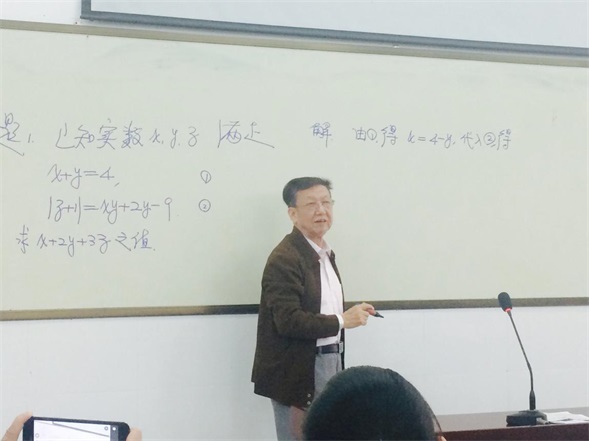 题1. 已知实数x,y,z满足
x+y=4, ①
|z+1|=xy+2y-9 ②
求x+2y+3z之值.
解 由①,得 x=4-y, 代入②,得